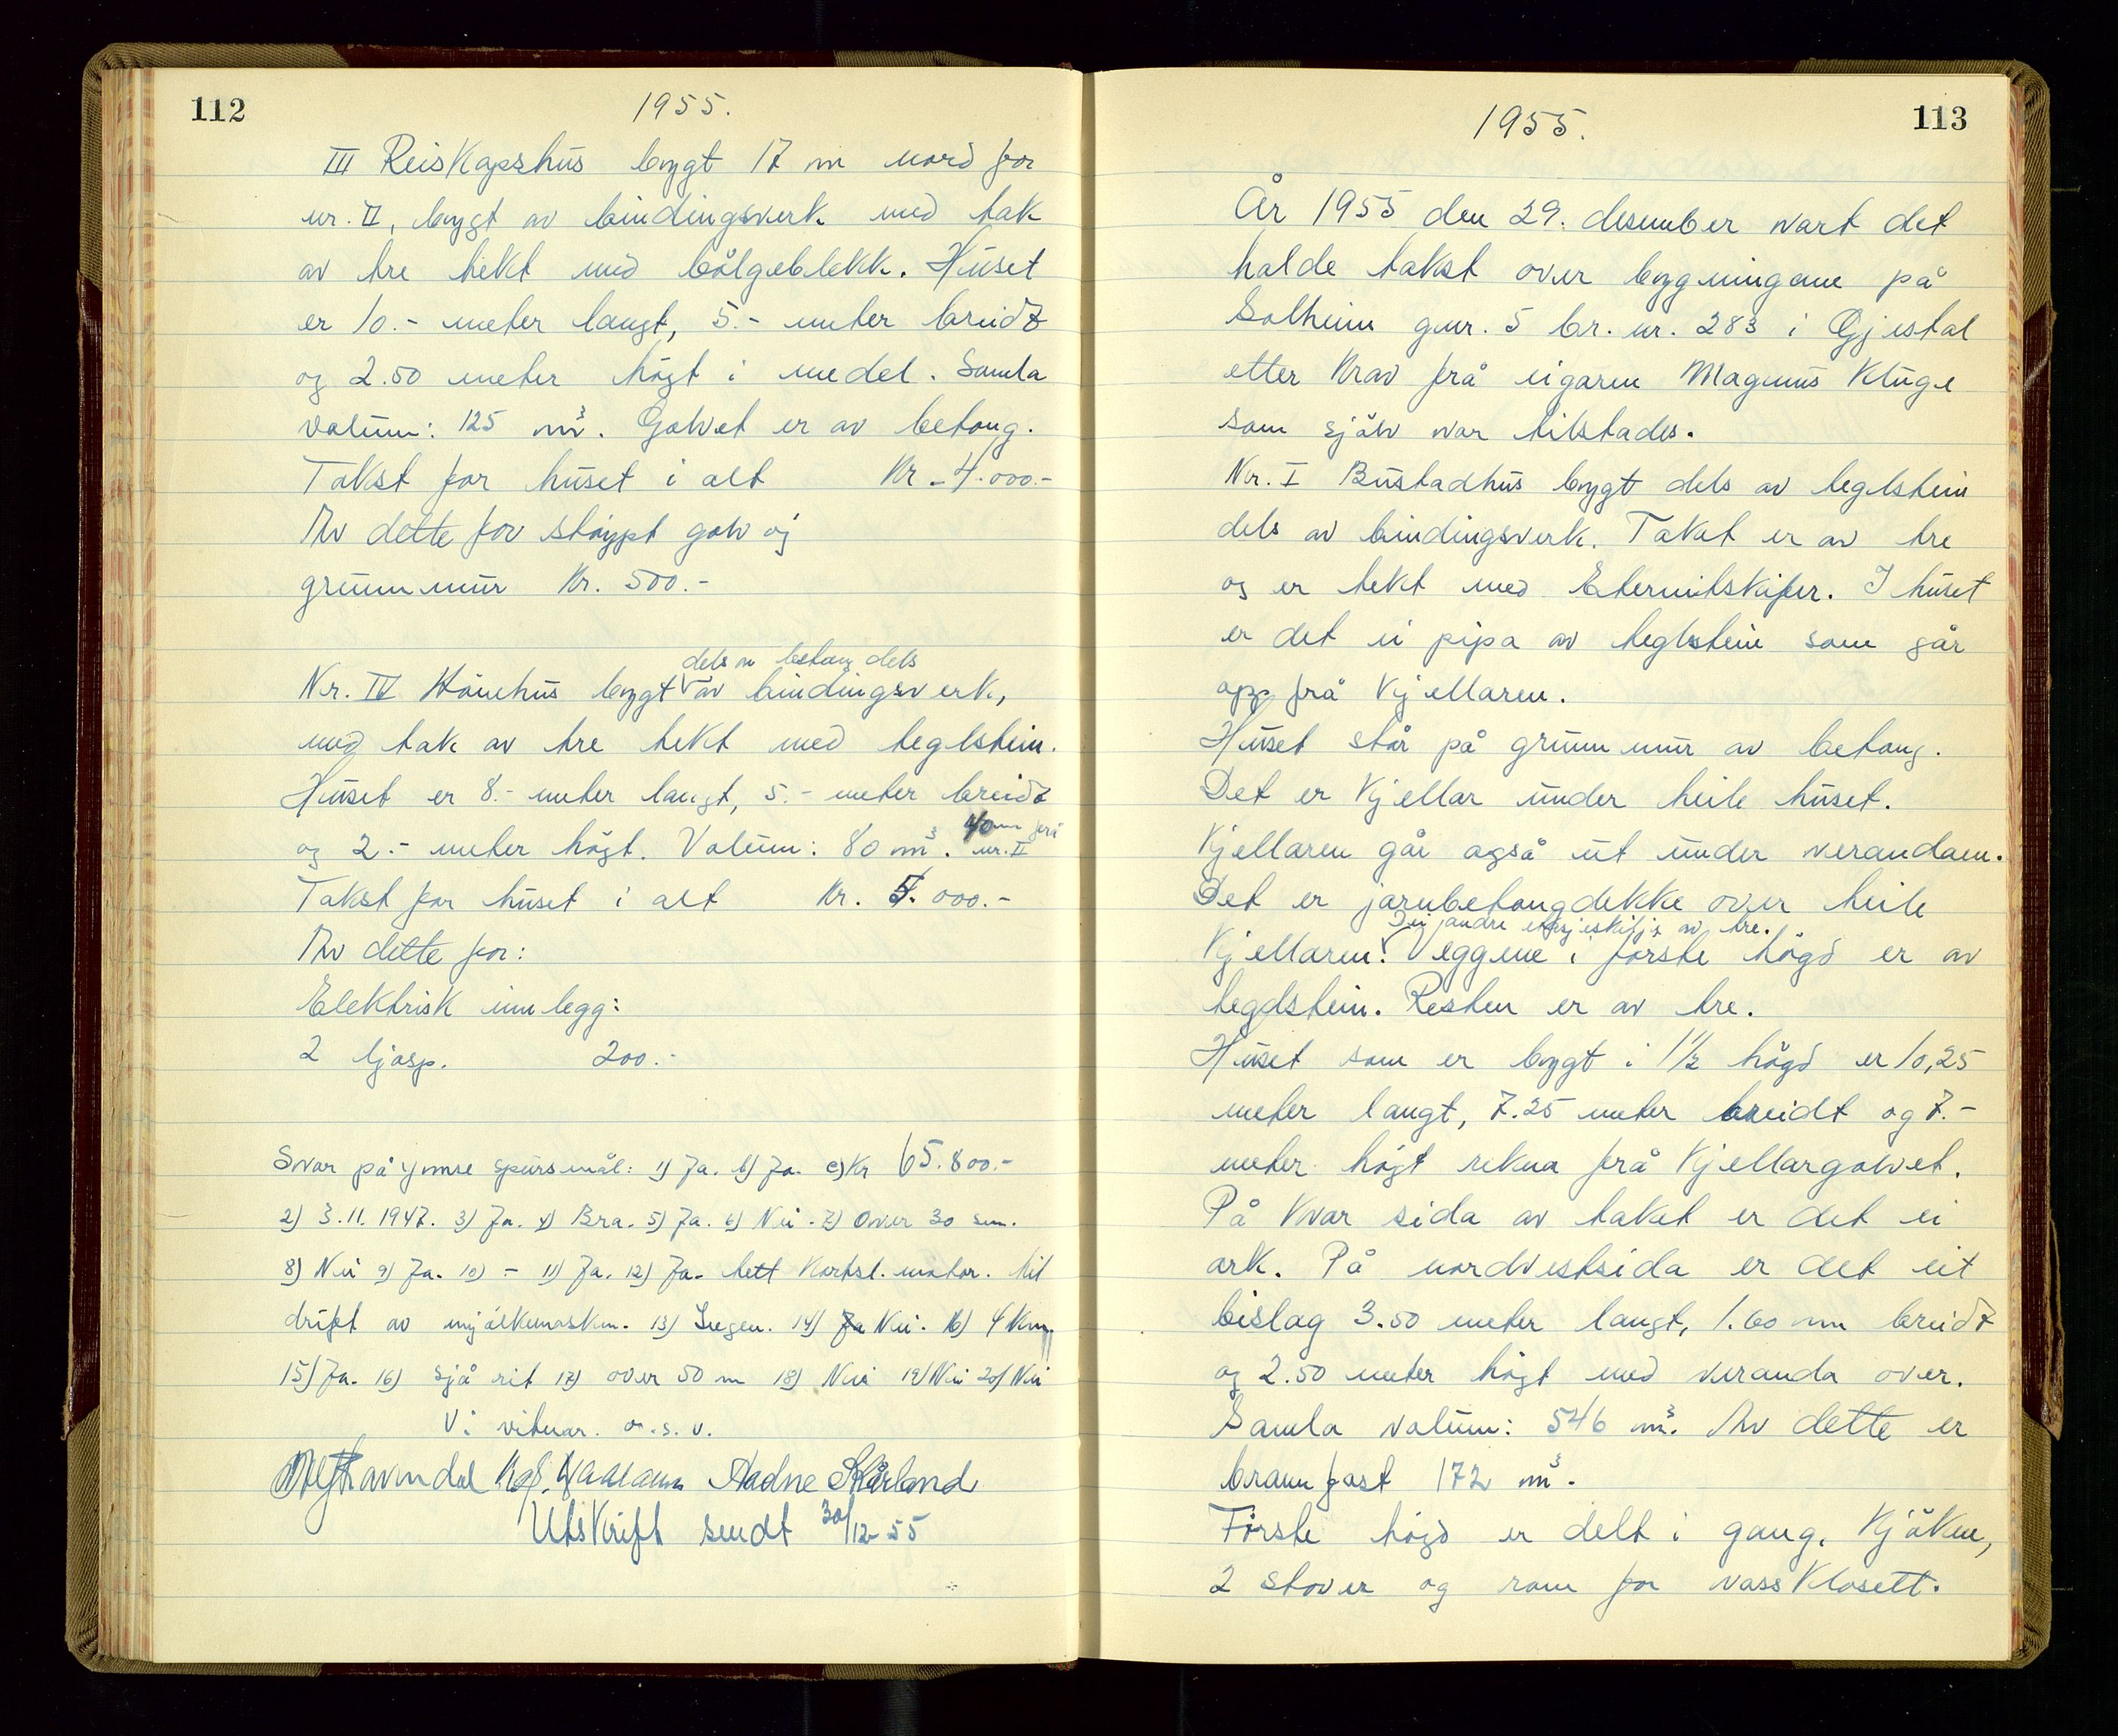 112
1955.
III Reiskapshus bygt 17 m nord for
nr. II, bygt av bindingsverk med tak
av tre tekt med bölgeblekk. Huset
er 10.- meter langt, 5.- meter breidt
og 2.50 meter högt i medel. Samla
volum: 125 m³. Golvet er av betong.
Takst for huset i alt Kr. 4.000.-
Av dette for stöypt golv og
grunnmur Kr. 500.-
dels av betong dels
Nr. IV Hönehus bygt av bindingsverk,
med tak av tre tekt med teglstein.
Huset er 8.- meter langt, 5.- meter breidt
40 m frå
og 2.- meter högt. Volum: 80 m³. nr. II
Takst for huset i alt Kr. 5.000.-
Av dette for:
Elektrisk innlegg:
2 ljosp. 200.-
Svar på ymse spursmål: 1) Ja. b) Ja. c) Kr 65.800.-
2) 3.11.1947. 3) Ja. 4) Bra. 5) Ja. 6) Nei. 7) Over 30 sm.
8) Nei 9) Ja. 10) - 11) Ja. 12) Ja. tett kortsl. motor. til
drift av mjölkemaskin. 13) Ingen. 14) Ja Nei. 16) 4 km.
15) Ja. 16) sjå rit 17) over 50 m 18) Nei 19) Nei 20) Nei
Vi vitnar. o.s.v.
Aadne Skårland
Utskrift sendt 30/12-55
113
1955.
År 1955 den 29. desember vart det
halde takst over bygningane på
Solheim gnr. 5 br. nr. 283 i Gjestal
etter krav frå eigaren Magnus Kluge
som sjölv var tilstades.
Nr. I Bustadhus bygt dels av teglstein
dels av bindingsverk. Taket er av tre
og er tekt med Eternitskifer. I huset
er det ei pipa av teglstein som går
opp frå kjellaren.
Huset står på grunnmur av betong.
Det er kjellar under heile huset.
Kjellaren går også ut under verandaen.
Det er jarnbetongdekke over heile
Dei andre etasjeskilje av tre.
kjellaren. Veggene i förste högd er av
teglstein. Resten er av tre.
Huset som er bygt i 1 1/2 högd er 10,25
meter langt, 7.25 meter breidt og 7.-
meter högt rekna frå kjellargolvet.
På kvar sida av taket er det ei
ark. På nordvestsida er det eit
bislag 3.50 meter langt, 1.60 m breidt
og 2.50 meter högt med veranda over.
Samla volum: 546 m³. Av dette er
brannfast 172 m³.
Förste högd er delt i gang, kjöken,
2 stover og rom for vassklosett.